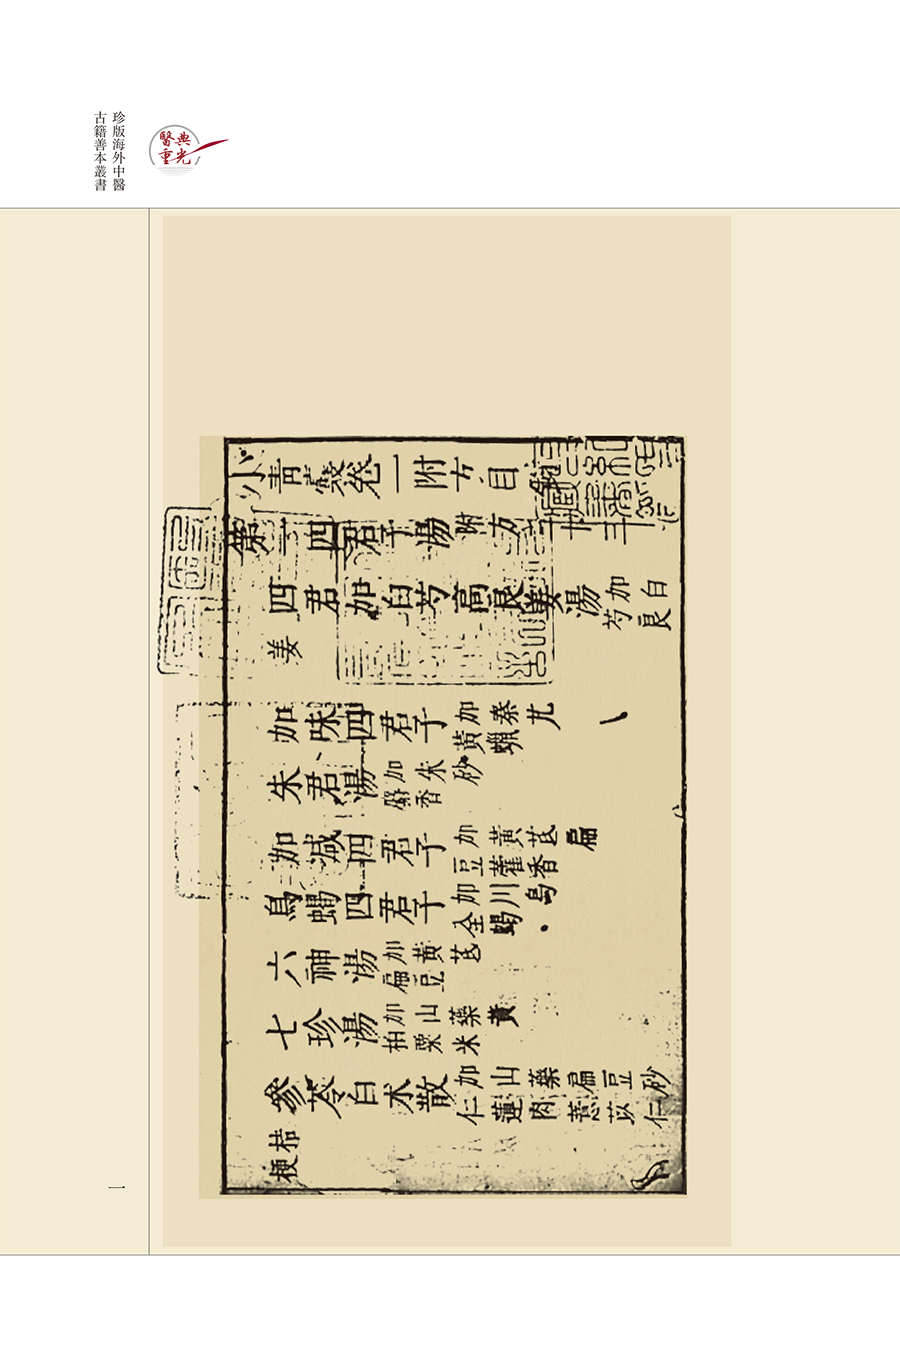 珍版海外中醫
古籍善本叢書
醫典重光
小青囊卷一附方目
第一四君子湯附方
四君加白芍高良姜湯加白芍良
姜
加味四君子加秦艽黃蠟
朱君湯加朱砂麝香
加減四君子加黃芪扁豆藿香
烏蝎四君子加川烏全蝎
六神湯加黃芪扁豆
七珍湯加山藥黃栢粟米
參苓白朮散加山藥扁豆砂仁蓮肉薏苡仁
桔梗
一